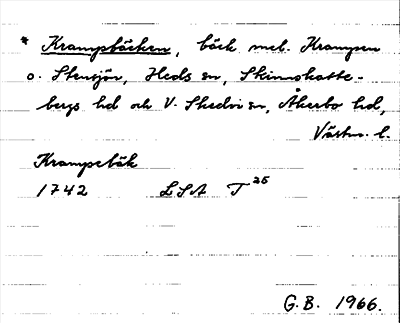 * Krampbäcken, bäck mel. Krampen
o. Stensjön, Heds sn, Skinnskatte-
bergs hd och V. Skedvi sn, Åkerbo hd,
Västm. l.
Krampebäk
1742 LSA T 25
G.B. 1966.